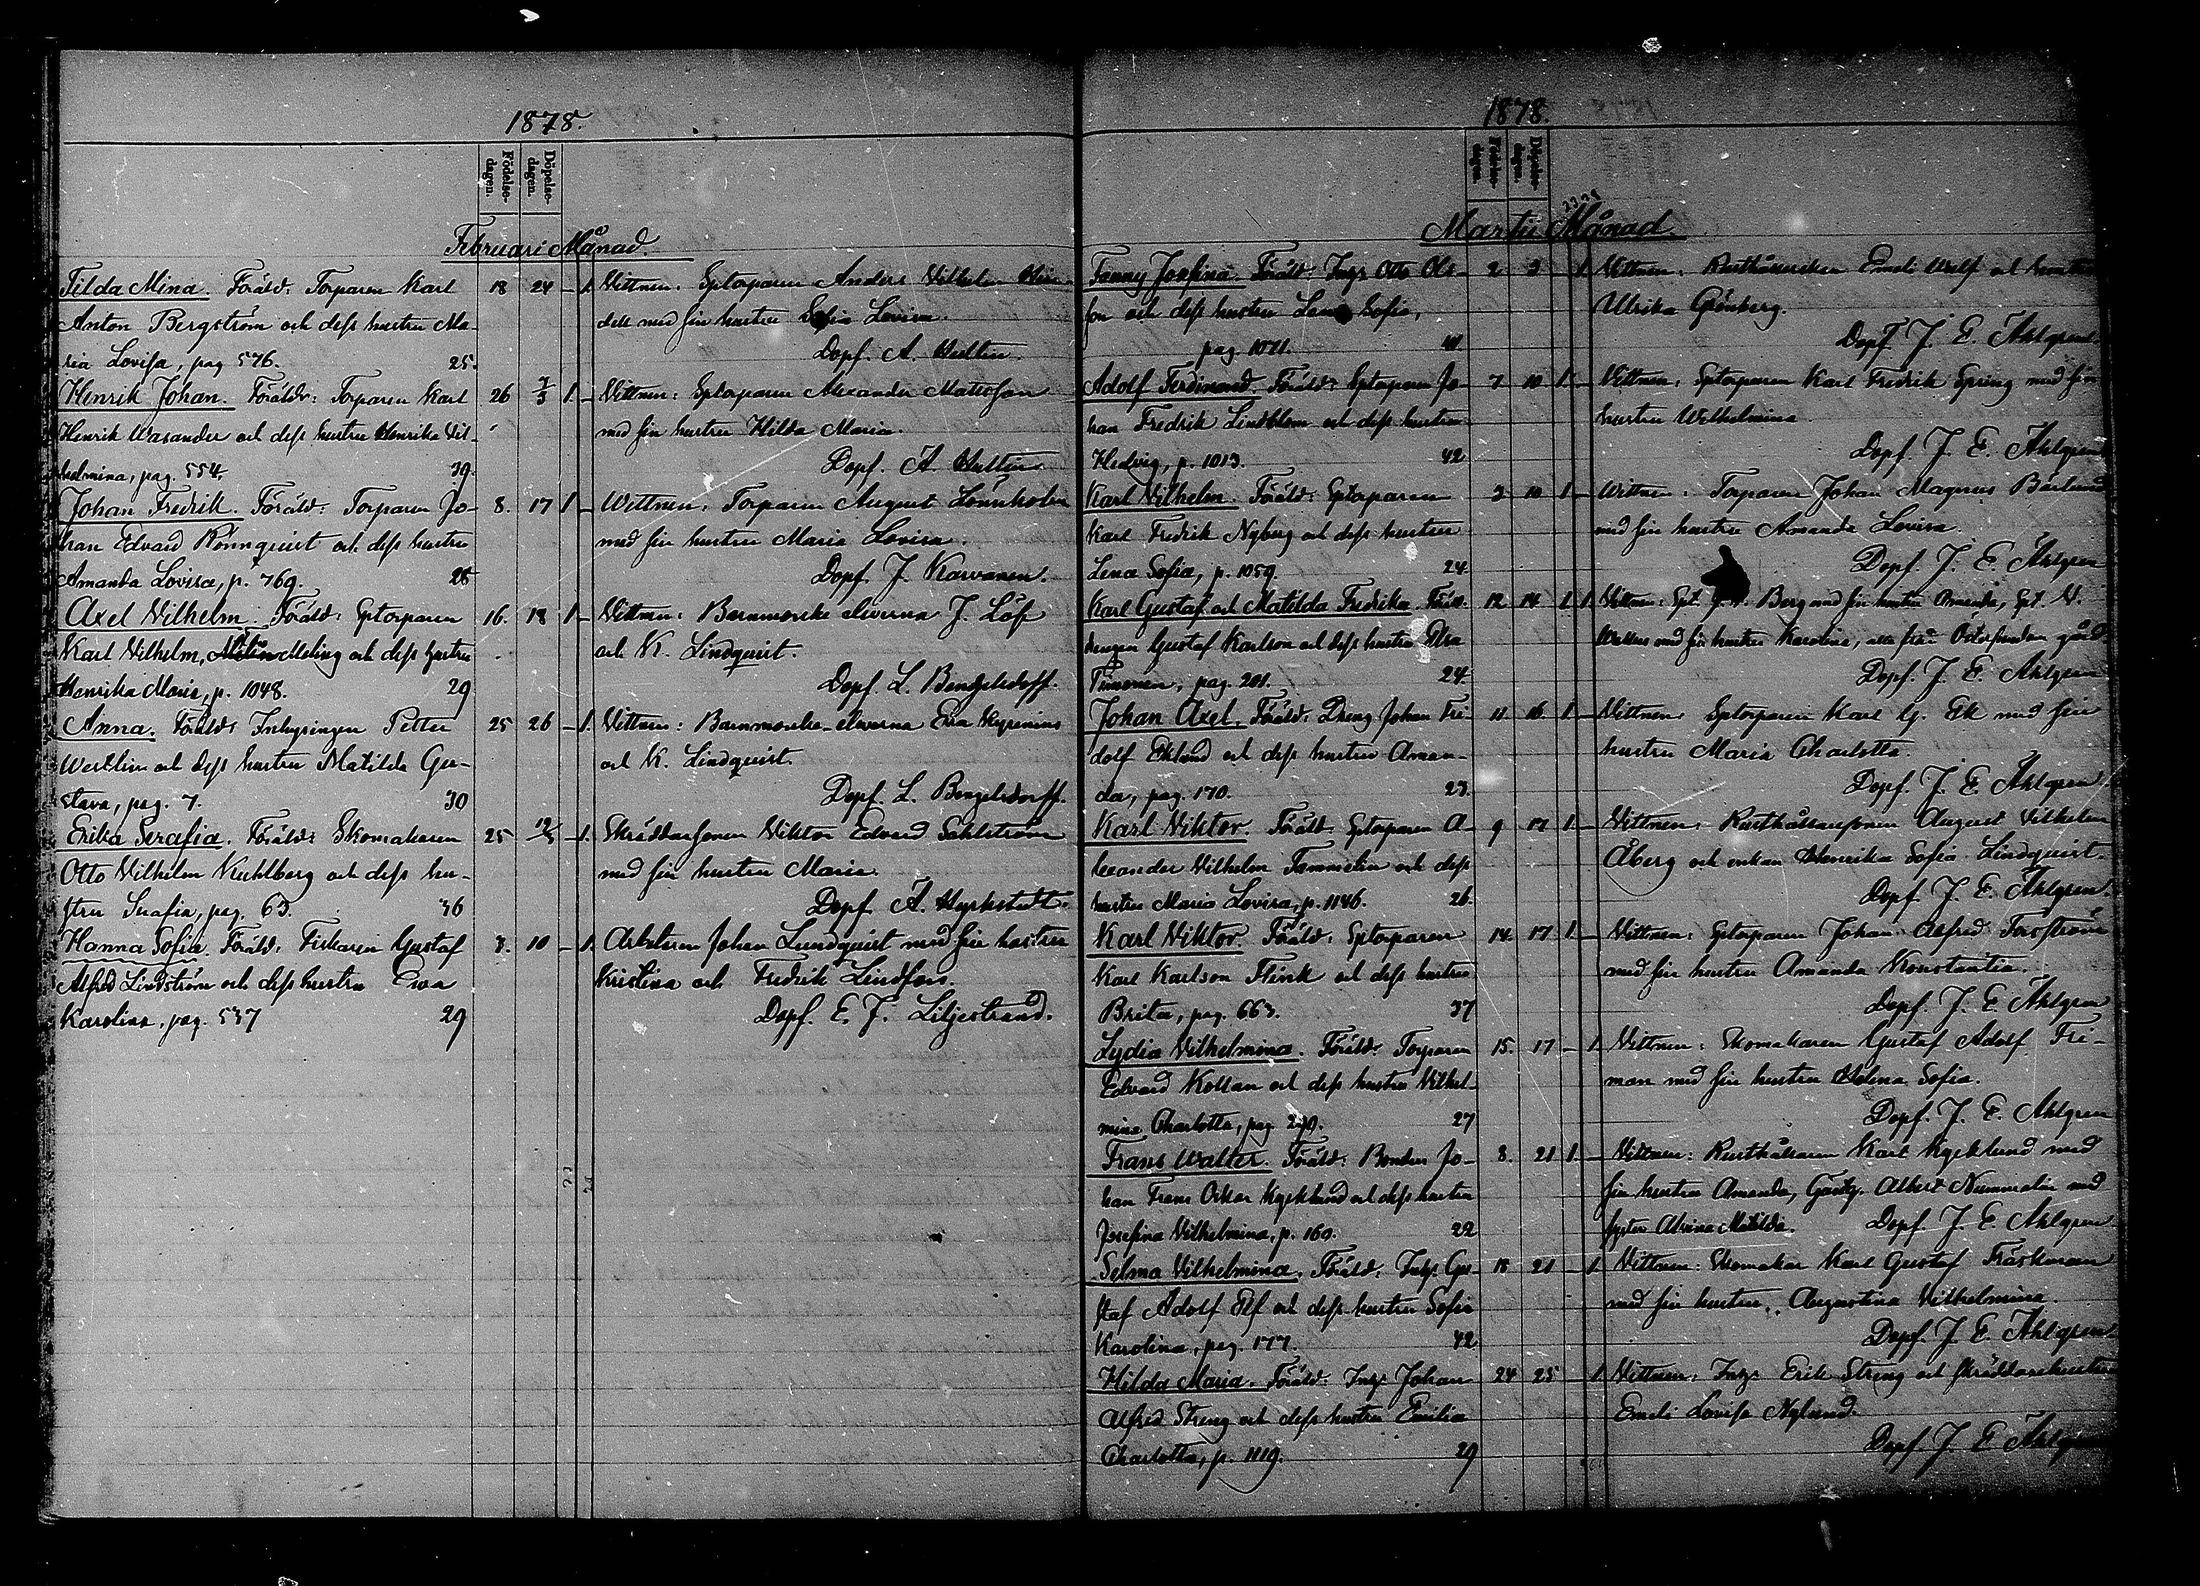 1878.
Födelse-dagen.
Döpelse-dagen.
Februari Månad.
Tilda Mina. Föräld: Torparen Karl 18 24 – 1. Vittnen: Sptorparen Anders Vilhelm
Anton Bergström och dess hustru Ma- dell med sin hustru Sofia Lovisa.
ria Lovisa, pag 576. 25. Dopf. A. Hultin.
Henrik Johan. Föräldr: Torparen Karl 26 7/3 1. – Vittnen: Sptorparen Alexander Mattsson
Henrik Wasander och dess hustru Henrika Vil- med sin hustru Hilda Maria.
helmina, pag. 554, 39. Dopf. A Hultin
Johan Fredrik. Föräld: Torparen Jo- 8. 17 1 – Wittnen: Torparen August Lönnholm
han Edvard Rönnquist och dess hustru med sin hustru Maria Lovisa.
Amanda Lovisa, p. 769. 28 Dopf. J. Karvonen.
Axel Vilhelm. Föräld: Sptorparen 16. 18 1 – Vittnen: Barnmorske eleverna J. Löf
Karl Vilhelm, Meling och dess hustru och K. Lindquist.
Henrika Maria, p. 1048. 29 Dopf. L. Bengelsdorff.
Anna. Föräld: Inhysingen Petter 25 26 – 1. Vittnen: Barnmorske-eleverna Eva Kyrenius
Westlin och dess hustru Matilda Gu- och K. Lindquist.
stava, pag. 7. 30 Dopf. L. Bengelsdorff.
Erika Serafia. Föräld: Skomakaren 25 12/3 – 1. Skräddarsonen Viktor Edvard Sahlström
Otto Vilhelm Kuhlberg och dess hu- med sin hustru Maria.
stru Serafia, pag. 63. 36 Dopf. A. Hyrkstedt.
Hanna Sofia. Föräld: Fiskaren Gustaf 8. 10 – 1. Arbetaren Johan Lundquist med sin hustru
Alfred Lindström och dess hustru Eva Kristina och Fredrik Lindfors.
Karolina, pag. 537 29 Dopf. E. J. Liljestrand.
1878.
Födelse-dagen.
Döpelse-dagen.
Martii Månad.
Fanny Josefina. Föräld: Inhys Otto Ols- 2 3 1. Vittnen: Rusthållerskan Emeli Wulf och
son och dess hustru Lena Sofia, Ulrika Grönberg.
pag. 1071. 41 Dopf J. E. Åhlgren
Adolf Ferdinand Föräld: Sptorparen Jo- 7 10 1 Vittnen: Sptorparen Karl Fredrik Spring med sin
han Fredrik Lindblom och dess hustru hustru Wilhelmina
Hedvig, p. 1013. 42 Dopf. J. E. Åhlgren
Karl Vilhelm. Föräld: Sptorparen 3 10 1 – Wittnen: Torparen Johan Magnus Bärlund
Karl Fredrik Nyberg och dess hustru med sin hustru Amanda Lovisa
Lena Sofia, p. 1059. 24. Dopf. J. E. Åhlgren
Karl Gustaf och Matilda Fredrika. Föräld: 12 14 1 1 Vittnen: Spt. Berg med sin hustru Amanda, Spt. V.
drengen Gustaf Karlson och dess hustru Elsa med sin hustru Karolina, alla från gård
Timonen, pag. 201. 24. Dopf. J. E. Åhlgren
Johan Axel. Föräld: Dreng Johan Fri- 11 16 1 – Vittnen: Sptorparen Karl G. Ek med sin
dolf Eklund och dess hustru Aman- hustru Maria Charlotta.
da, pag. 170. 23. Dopf. J. E. Åhlgren
Karl Viktor. Föräld: Sptorparen A- 9 17 1 – Vittnen: Rusthållaresonen August Vilhelm
lexander Vilhelm Tammelin och dess Åberg och enkan Henrika Sofia Lindquist.
hustru Maria Lovisa, p. 1146. 26. Dopf. J. E. Åhlgren
Karl Viktor. Föräld: Sptorparen 14. 17 1 – Vittnen: Sptorparen Johan Alfred Forsström
Karl Karlson Flink och dess hustru med sin hustru Amanda Konstantia.
Brita, pag. 663. 37 Dopf. J. E. Åhlgren
Lydia Vilhelmina. Föräld: Torparen 15. 17 – 1. Vittnen: Skomakaren Gustaf Adolf Fri-
Edvard Kollan och dess hustru Vilhel- man med sin hustru Helena Sofia.
mina Charlotta, pag. 270. 27 Dopf. J. E. Åhlgren
Frans Walter. Föräld: Bonden Jo- 8. 21 1. – Vittnen: Rusthållaren Karl Kycklund med
han Frans Oskar Kycklund och dess hustru sin hustru Amanda, Albert Nummelin med
Josefina Vilhelmina, p. 160. 22 syster Alvina Matilda. Dopf. J. E. Åhlgren
Selma Vilhelmina. Föräld: Inhys Gu- 18 21 – 1. Vittnen: Skomakar Karl Gustaf Träskman
staf Adolf Elf och dess hustru Sofia med sin hustru Augustina Vilhelmina.
Karolina, pag. 177. 42 Dopf. J. E. Åhlgren
Hilda Maria. Föräld: Inhys Johan 24 25 1 Vittnen: Inhys Erik Streng och skräddarehustru
Alfred Streng och dess hustru Emilia Emeli Lovisa Nylund.
Charlotta, p. 1119. 29 Dopf. J E Åhlgren